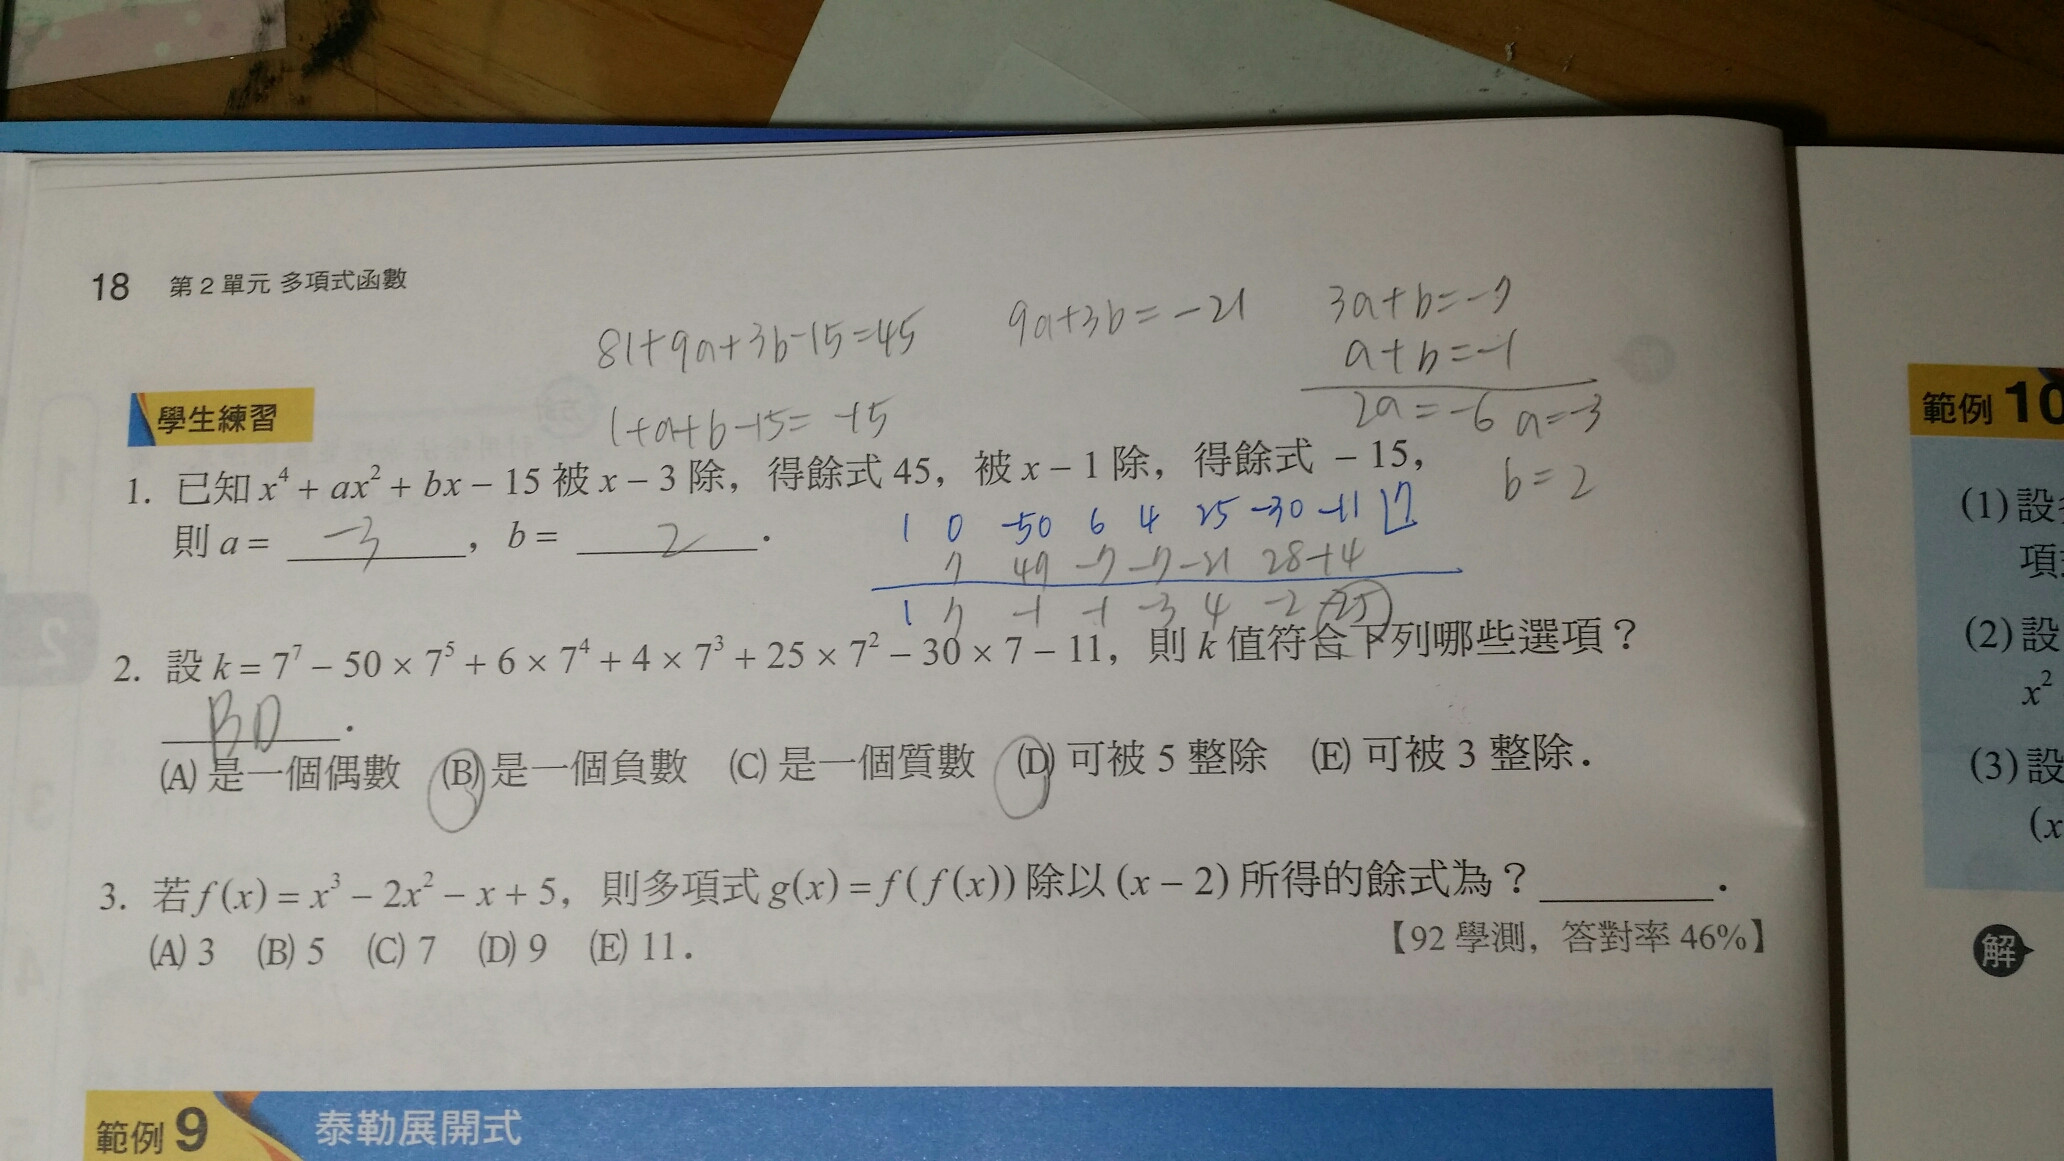 18 第2單元 多項式函數
81+9a+3b-15=45 9a+3b=-21 3a+b=-7
a+b=-1
1+a+b-15=-15 2a=-6 a=-3
b=2
學生練習
1. 已知 x⁴ + ax² + bx − 15 被 x − 3 除，得餘式 45，被 x − 1 除，得餘式 − 15，
則 a = -3 ，b = 2 ．
1 0 -50 6 4 25 -30 -11 7
7 49 -7 -7 -21 28 -14
1 7 -1 -1 -3 4 -2 -25
2. 設 k = 7⁷ − 50 × 7⁵ + 6 × 7⁴ + 4 × 7³ + 25 × 7² − 30 × 7 − 11，則 k 值符合下列哪些選項？
BD ．
(A) 是一個偶數 (B) 是一個負數 (C) 是一個質數 (D) 可被 5 整除 (E) 可被 3 整除．
3. 若 f (x) = x³ − 2x² − x + 5，則多項式 g(x) = f ( f (x)) 除以 (x − 2) 所得的餘式為？ ．
(A) 3 (B) 5 (C) 7 (D) 9 (E) 11．
【92 學測，答對率 46%】
範例 9 泰勒展開式
範例 10
(1) 設
項
(2) 設
x²
(3) 設
(x
解